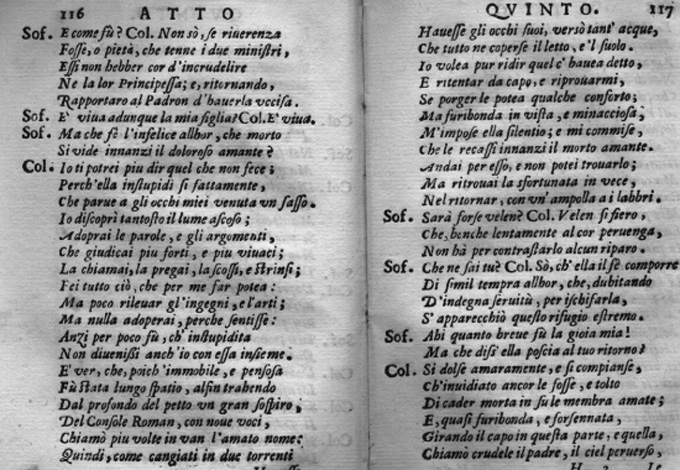 116 ATTO
Sof. E come fù? Col. Non sò, se riuerenza
Fosse, o pietà, che tenne i due ministri,
Essi non hebber cor d'incrudelire
Ne la lor Principessa; e, ritornando,
Rapportaro al Padron d'hauerla vccisa.
Sof. E' viua adunque la mia figlia? Col. E' viua.
Sof. Ma che fè l'infelice allhor, che morto
Si vide innanzi il doloroso amante?
Col. Io ti potrei piu dir quel che non fece;
Perch'ella instupidì si fattamente,
Che parue a gli occhi miei venuta vn sasso.
Io discoprì tantosto il lume ascoso;
Adoprai le parole, e gli argomenti,
Che giudicai piu forti, e piu viuaci;
La chiamai, la pregai, la scossi, e strinsi;
Fei tutto ciò, che per me far potea:
Ma poco rileuar gl'ingegni, e l'arti;
Ma nulla adoperai, perche sentisse:
Anzi per poco fù, ch'instupidita
Non diuenissi anch'io con essa insieme.
E' ver, che, poich'immobile, e pensosa
Fù stata lungo spatio, alfin trahendo
Dal profondo del petto vn gran sospiro,
Del Console Roman, con noue voci,
Chiamò piu volte in van l'amato nome:
Quindi, come cangiati in due torrenti
QVINTO. 117
Hauesse gli occhi suoi, versò tant'acque,
Che tutto ne coperse il letto, e'l suolo.
Io volea pur ridir quel c'hauea detto,
E ritentar da capo, e riprouarmi,
Se porger le potea qualche conforto;
Ma furibonda in vista, e minacciosa,
M'impose ella silentio; e mi commise,
Che le recassi innanzi il morto amante.
Andai per esso, e non potei trouarlo;
Ma ritrouai la sfortunata in vece,
Nel ritornar, con vn'ampolla a i labbri.
Sof. Sarà forse velen? Col. Velen sì fiero,
Che, benche lentamente al cor peruenga,
Non hà per contrastarlo alcun riparo.
Sof. Che ne sai tu? Col. Sò, ch'ella il fè comporre
Di simil tempra allhor, che, dubitando
D'indegna seruitù, per ischifarla,
S'apparecchiò questo rifugio estremo.
Sof. Ahi quanto breue fù la gioia mia!
Ma che diss'ella poscia al tuo ritorno?
Col. Si dolse amaramente, e si compianse,
Ch'inuidiato ancor le fosse, e tolto
Di cader morta in su le membra amate;
E, quasi furibonda, e forsennata,
Girando il capo in questa parte, e quella,
Chiamò crudele il padre, il ciel peruerso,
H 3 Le